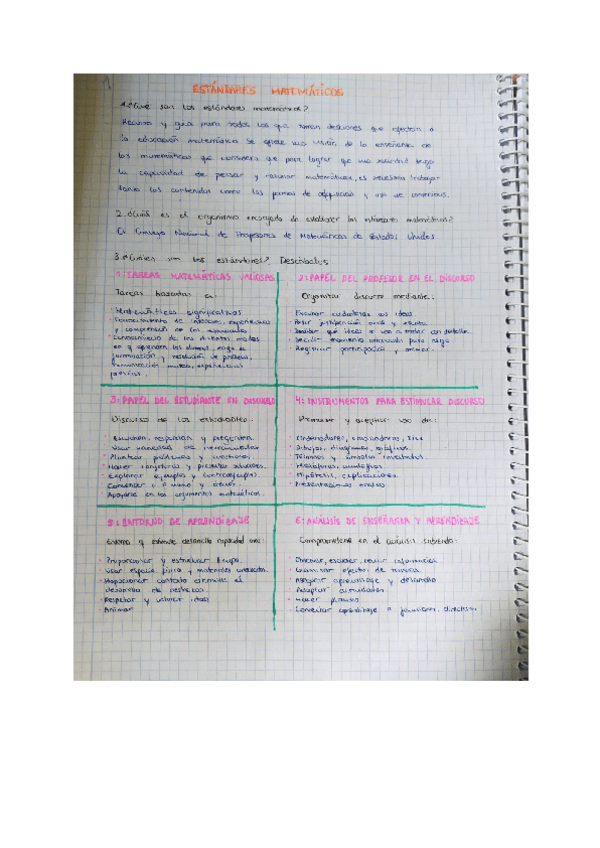 ESTÁNDARES MATEMÁTICOS
1.¿Qué son los estándares matemáticos?
Recurso y guía para todos los que toman decisiones que afectan a
la educación matemática se ofrece una visión de la enseñanza de
las matemáticas que considera que para lograr que una sociedad tenga
la capacidad de pensar y razonar matemáticas, es necesario trabajar
tanto los contenidos como las formas de adquisición y
2. ¿Cuál es el organismo encargado de establecer los estándares matemáticos?
El Consejo Nacional de Profesores de Matemáticas de Estados Unidos.
3.¿Cuáles son los estándares? Descríbelos
1: TAREAS MATEMÁTICAS VALIOSAS
Tareas basadas en:
· Matemáticas significativas
· Conocimiento de intereses, experiencias
y comprensión de los
· Conocimiento de los distintos modos
en q aprenden los alumnos, exige la
formulación y resolución de problemas,
2: PAPEL DEL PROFESOR EN EL DISCURSO
Organizar discurso mediante:
· Escuchar cuidadosamente sus ideas
· Pedir justificación oral y escrita
· Decidir que ideas se van a tratar con detalle
· Decidir momento adecuado para algo
· Registrar participación y
3: PAPEL DEL ESTUDIANTE EN DISCURSO
Discurso de los estudiantes:
· Escuchen, respondan y pregunten
· Usar variedad de herramientas
· Plantear problemas y cuestiones.
· Hacer conjeturas y presentar soluciones.
· Explorar ejemplos y contraejemplos.
· Convencer a sí mismo y otros.
· Apoyarse en los argumentos matemáticos.
4: INSTRUMENTOS PARA ESTIMULAR DISCURSO
Promueve y aceptar uso de:
· Ordenadores, calculadoras, etc
· Dibujos, diagramas, gráficos.
· Términos y símbolos inventados.
· Metáforas, analogías
· Hipótesis, explicaciones.
· Presentaciones orales
5: ENTORNO DE APRENDIZAJE
· Proporcionar y estructurar tiempo.
· Usar espacio físico y materiales
· Proporcionar contexto el
desarrollo de destrezas
· Respetar y valorar ideas
· Animar
6: ANÁLISIS DE ENSEÑANZA Y APRENDIZAJE
Comprometerse en el análisis
· Observar, escuchar, reunir información
· Examinar efectos de tareas
· Asegurar aprendizaje y desarrollo
· Adaptar actividades
· Hacer planes